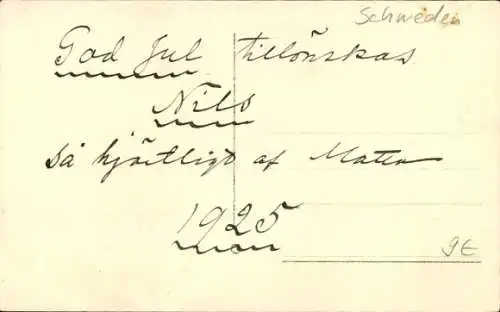 Schweden
God Jul tillönskas
Nils
så hjärtligt af
1925
9E